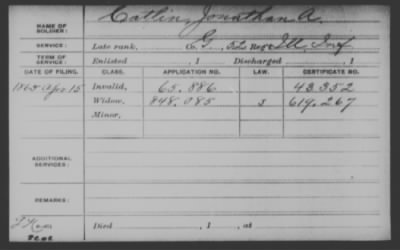 NAME OF SOLDIER: Catlin, Jonathan A.
SERVICE: Late rank, Co. G, 52 Reg't Ill. Inf
TERM OF SERVICE: Enlisted , 1 Discharged , 1
DATE OF FILING. CLASS. APPLICATION NO. LAW. CERTIFICATE NO.
1865 Apr 15 Invalid, 65.886 43.352
Widow, 848.085 J 619.267
Minor,
ADDITIONAL SERVICES:
REMARKS:
Died , 1 , at